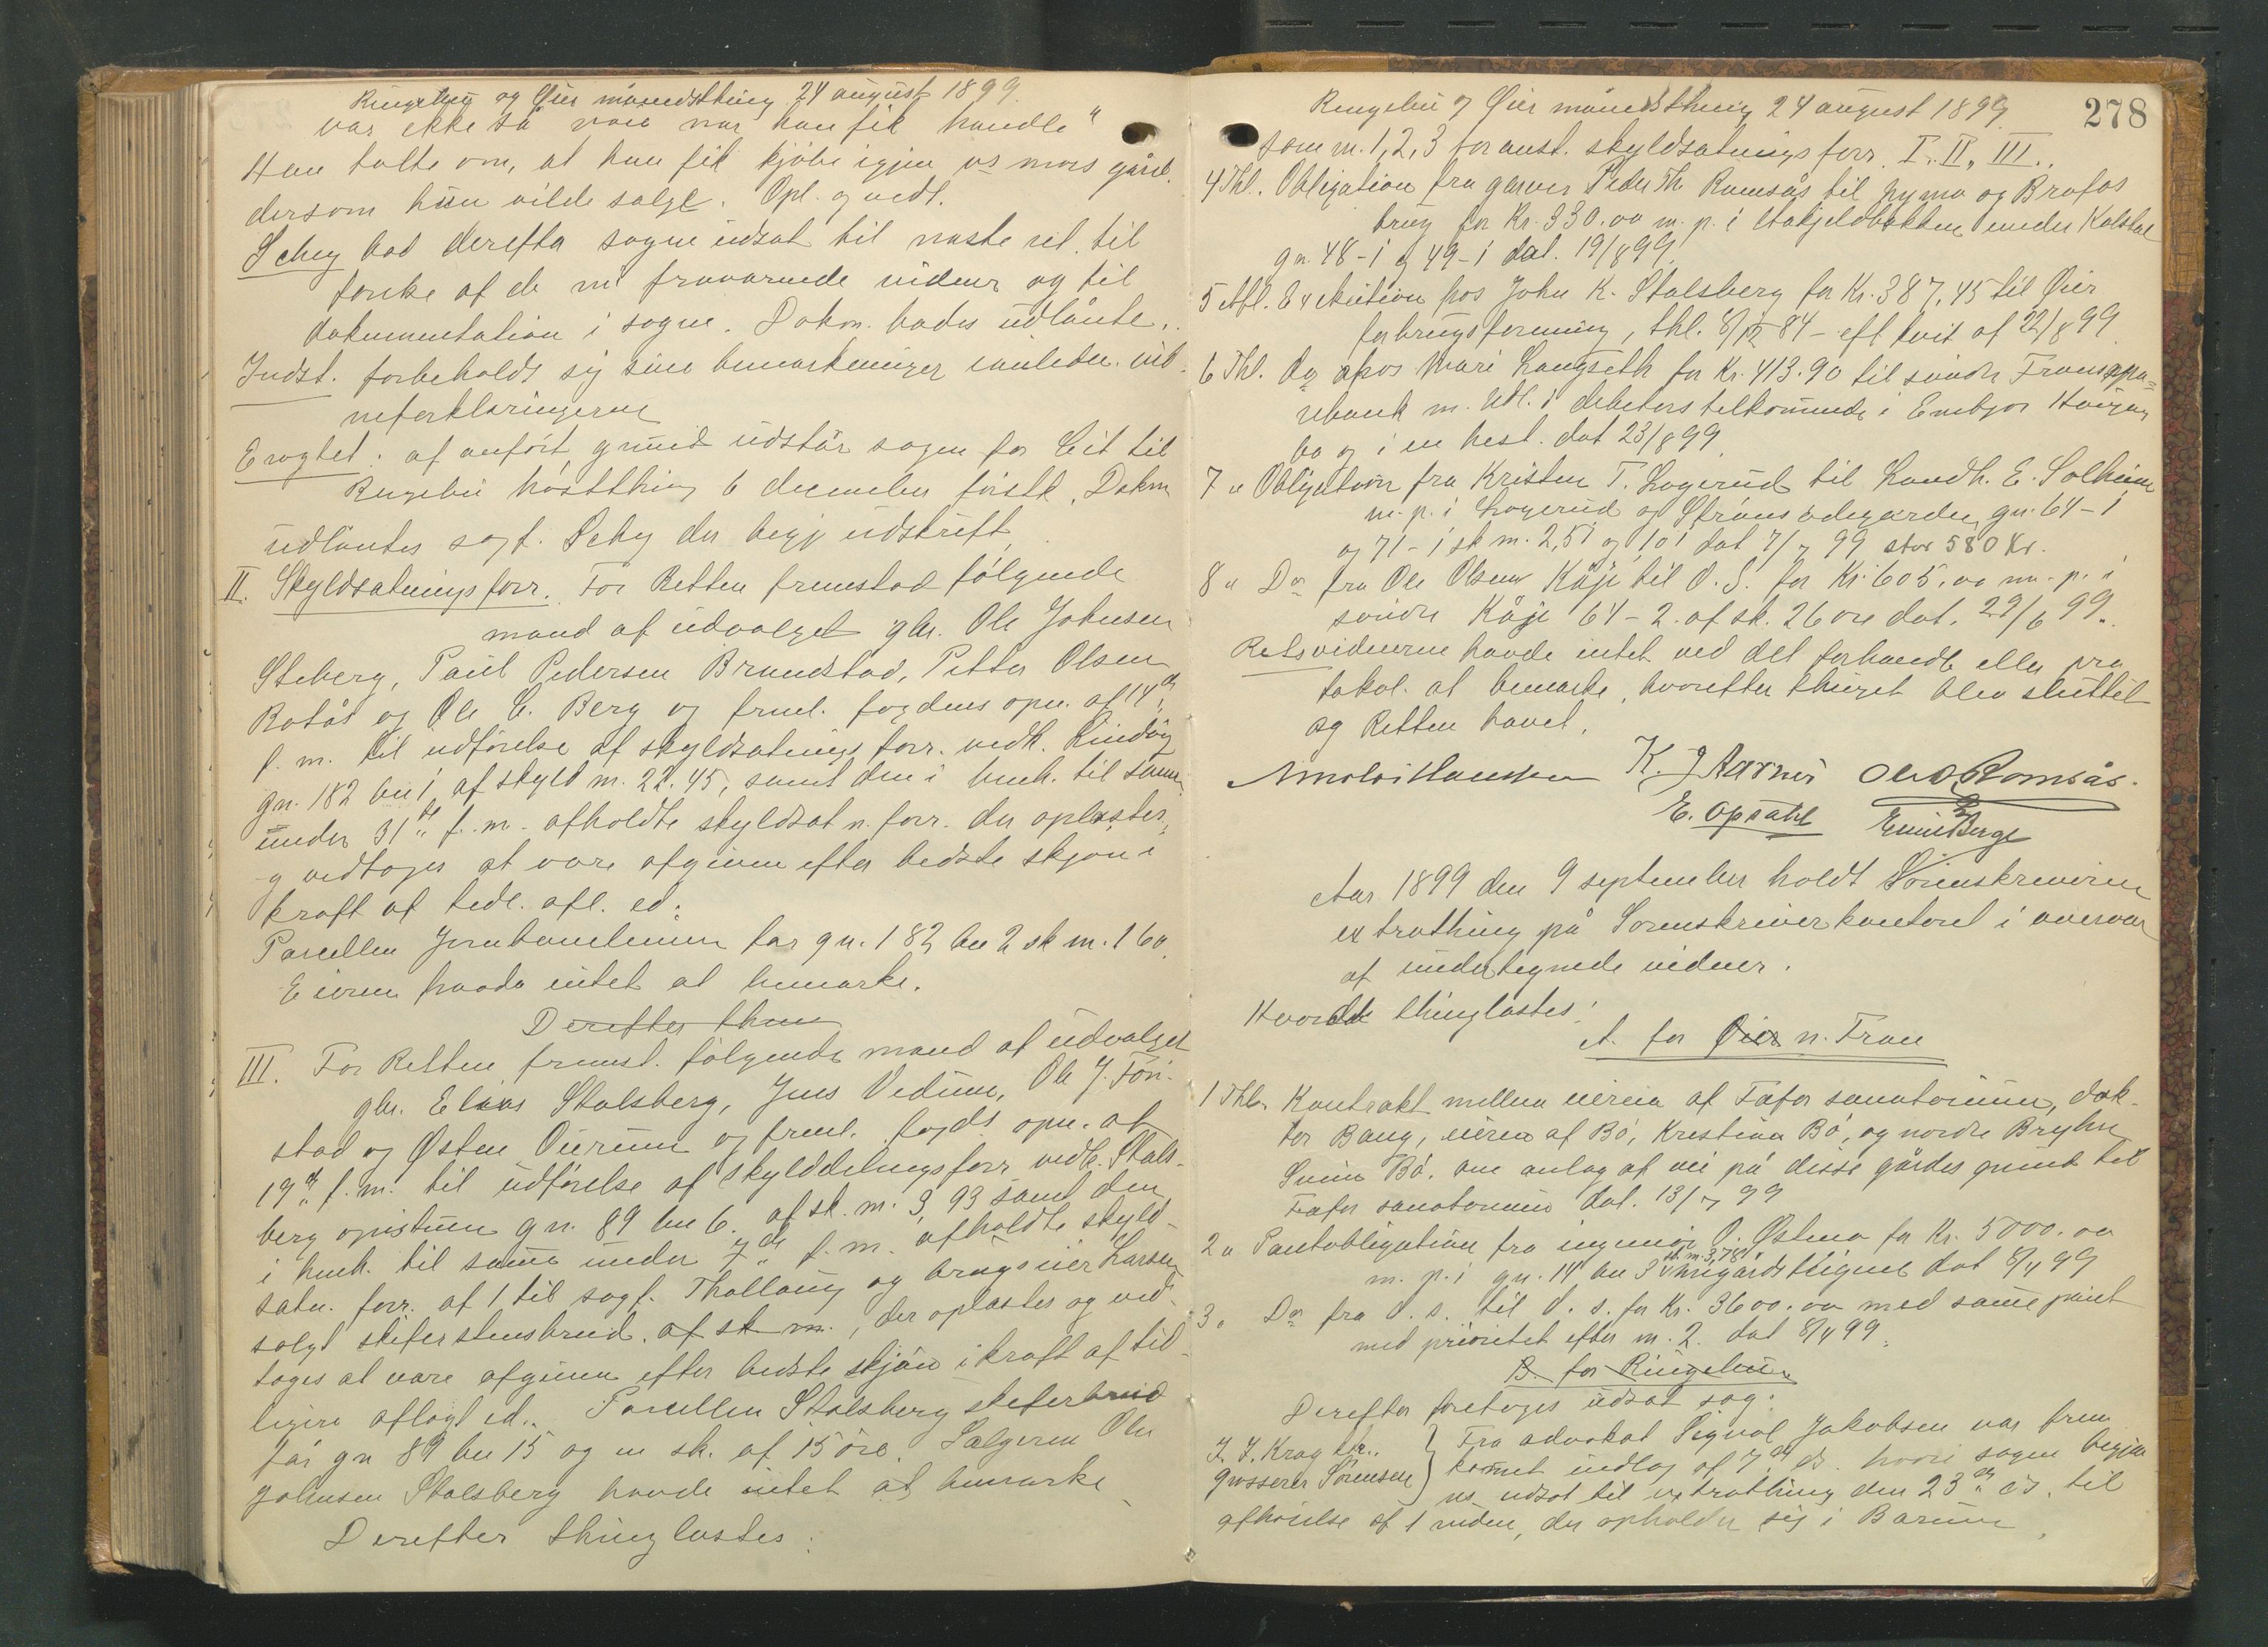 Ringebu og Øier månedsthing 24 august 1899.
var ikke så nøie når han fik handle"
Han talte om, at han fik kjöbe igjen mors gård
dersom hun vilde sælge. Opl. og vedt.
Schey bad derefter sagen udsat til næste ret til
førelse af de nu fraværende vidner og til
dokumentation i sagen. Dokm. bades udlånte.
Indst. forbeholdt sig sine bemærkninger vid-
neforklaringerne
Eragtet: af anført grund udstår sagen for Eit til
Ringebu høstthing 6 december førstk. Dokm
udlåntes sagf. Schey der begj udskrift
II. Skyldsætningsforr. For Retten fremstod følgende
mænd af udvalget gbr. Ole Johnsen
Steberg, Paul Pedersen Brundstad, Petter Olsen
Rotås og Ole C. Berg og freml. fogdens opn. af 14de
f. m. til udførelse af skyldsætningsforr. vedk.
gn. 182 bn 1 af skyld m. 22.45, samt den i henh. til samme
under 31te f. m. afholdte skyldsætn. forr. der oplæstes
og vedtoges at være afgiven efter bedste skjøn i
kraft af tidl. afl. ed.
Parcellen Jernbanelinien får gn. 182 bn 2 sk m. 1 60.
Eieren havde intet at bemærke.
Derefter thin
III. For Retten fremst. følgende mænd af udvalget
gbr. Elias Stalsberg, Jens Vedum, Ole J.
stad og Østen og freml. fogds opn. af
19de f. m. til udførelse af skylddelingsforr vedk. Stals-
berg gn. 89 bn 6. af sk. m. 3,93 samt den
i henh. til samme under 7de f. m. afholdte skyld-
sætn. forr. af 1 til sagf. Thallaug og brugseier Larsen
solgt skiferstensbrud. af sk m., der oplæstes og ved-
toges at være afgiven efter bedste skjøn i kraft af tid-
ligere aflagt ed. Parcellen Stalsberg skiferbrud
får gn 89 bn 15 og en sk. af 15 öre. Sælgeren Ole
Johnsen Stalsberg havde intet at bemærke
Derefter thinglæstes:
278
Ringebu og Øier månedsthing 24 august 1899
som m. 1, 2, 3 foranst. skyldsætningsforr. I. II. III.
4 Thl. Obligation fra garver Peder Th Romsås til Fryma og Brofos
brug for Kr. 330.00 m. p. i under Kolstad
gn. 48-1 og 49-1 dat. 19/8 99.
5 Afl. Exekution hos John K. Stalsberg for Kr. 387,45 til Øier
forbrugsforening, thl. 8/12 84 - eft kvit af 22/8 99
6 Thl. Do hos Mari Langseth for Kr. 413.90 til søndre Frons spa-
rebank m. Udl. i debitors tilkommende i Embjør
bo og i en hest. dat 23/8 99
7 " Obligation fra Kristen T. Logerud til Landh. E. Solheim
m. p. i Logerud og gn. 64-1
og 71-1 sk m. 2,51 og 101 dat 7/7 99 stor 580 Kr.
8 " Do fra Ole Olsen Kåje til O. S. for Kr. 605.00 m. p. i
søndre Kåje 64-2. af sk. 26 øre dat. 29/6 99.
Retsvidnerne havde intet ved det forhandl eller pro
tokol. at bemærke, hvorefter thinget blev sluttet
og Retten hævet.
K. J Aarnes Ole O Romsås.
E. Opsahl Emil Berge
Aar 1899 den 9 september holdt Sorenskriveren
extrathing på Sorenskriverkontoret i overvær
af undertegnede vidner.
Hvorda thinglæstes:
A. for Øier n. Fron
1 Thl. Kontrakt mellem eieren af Fefor sanatorium, dok-
tor Bang, eieren af Bø, Kristina Bø, og nordre Bryhn
Bø. om anlæg af vei på disse gårdes grund til
Fefor sanatorium dat. 13/7 99
2 " Pantobligation fra ingeniør O. Østmo for Kr. 5000.00
sk. m. 3,78
m. p. i gn. 14 bn 3 dat 8/4 99
3 " Do fra d. s. til d. s. for Kr. 3600.00 med samme pant
med prioritet efter m. 2. dat 8/4 99.
B for Ringebu.
Derefter foretoges udsat sag:
J. J. Krag ctr.
grosserer Sörensen
Fra advokat Sigval Jakobsen var frem
kommet indlæg af 7de ds. hvori sagen begjæ
res udsat til extrathing den 23de ds. til
afhørelse af 1 vidne, der opholder sig i Bærum